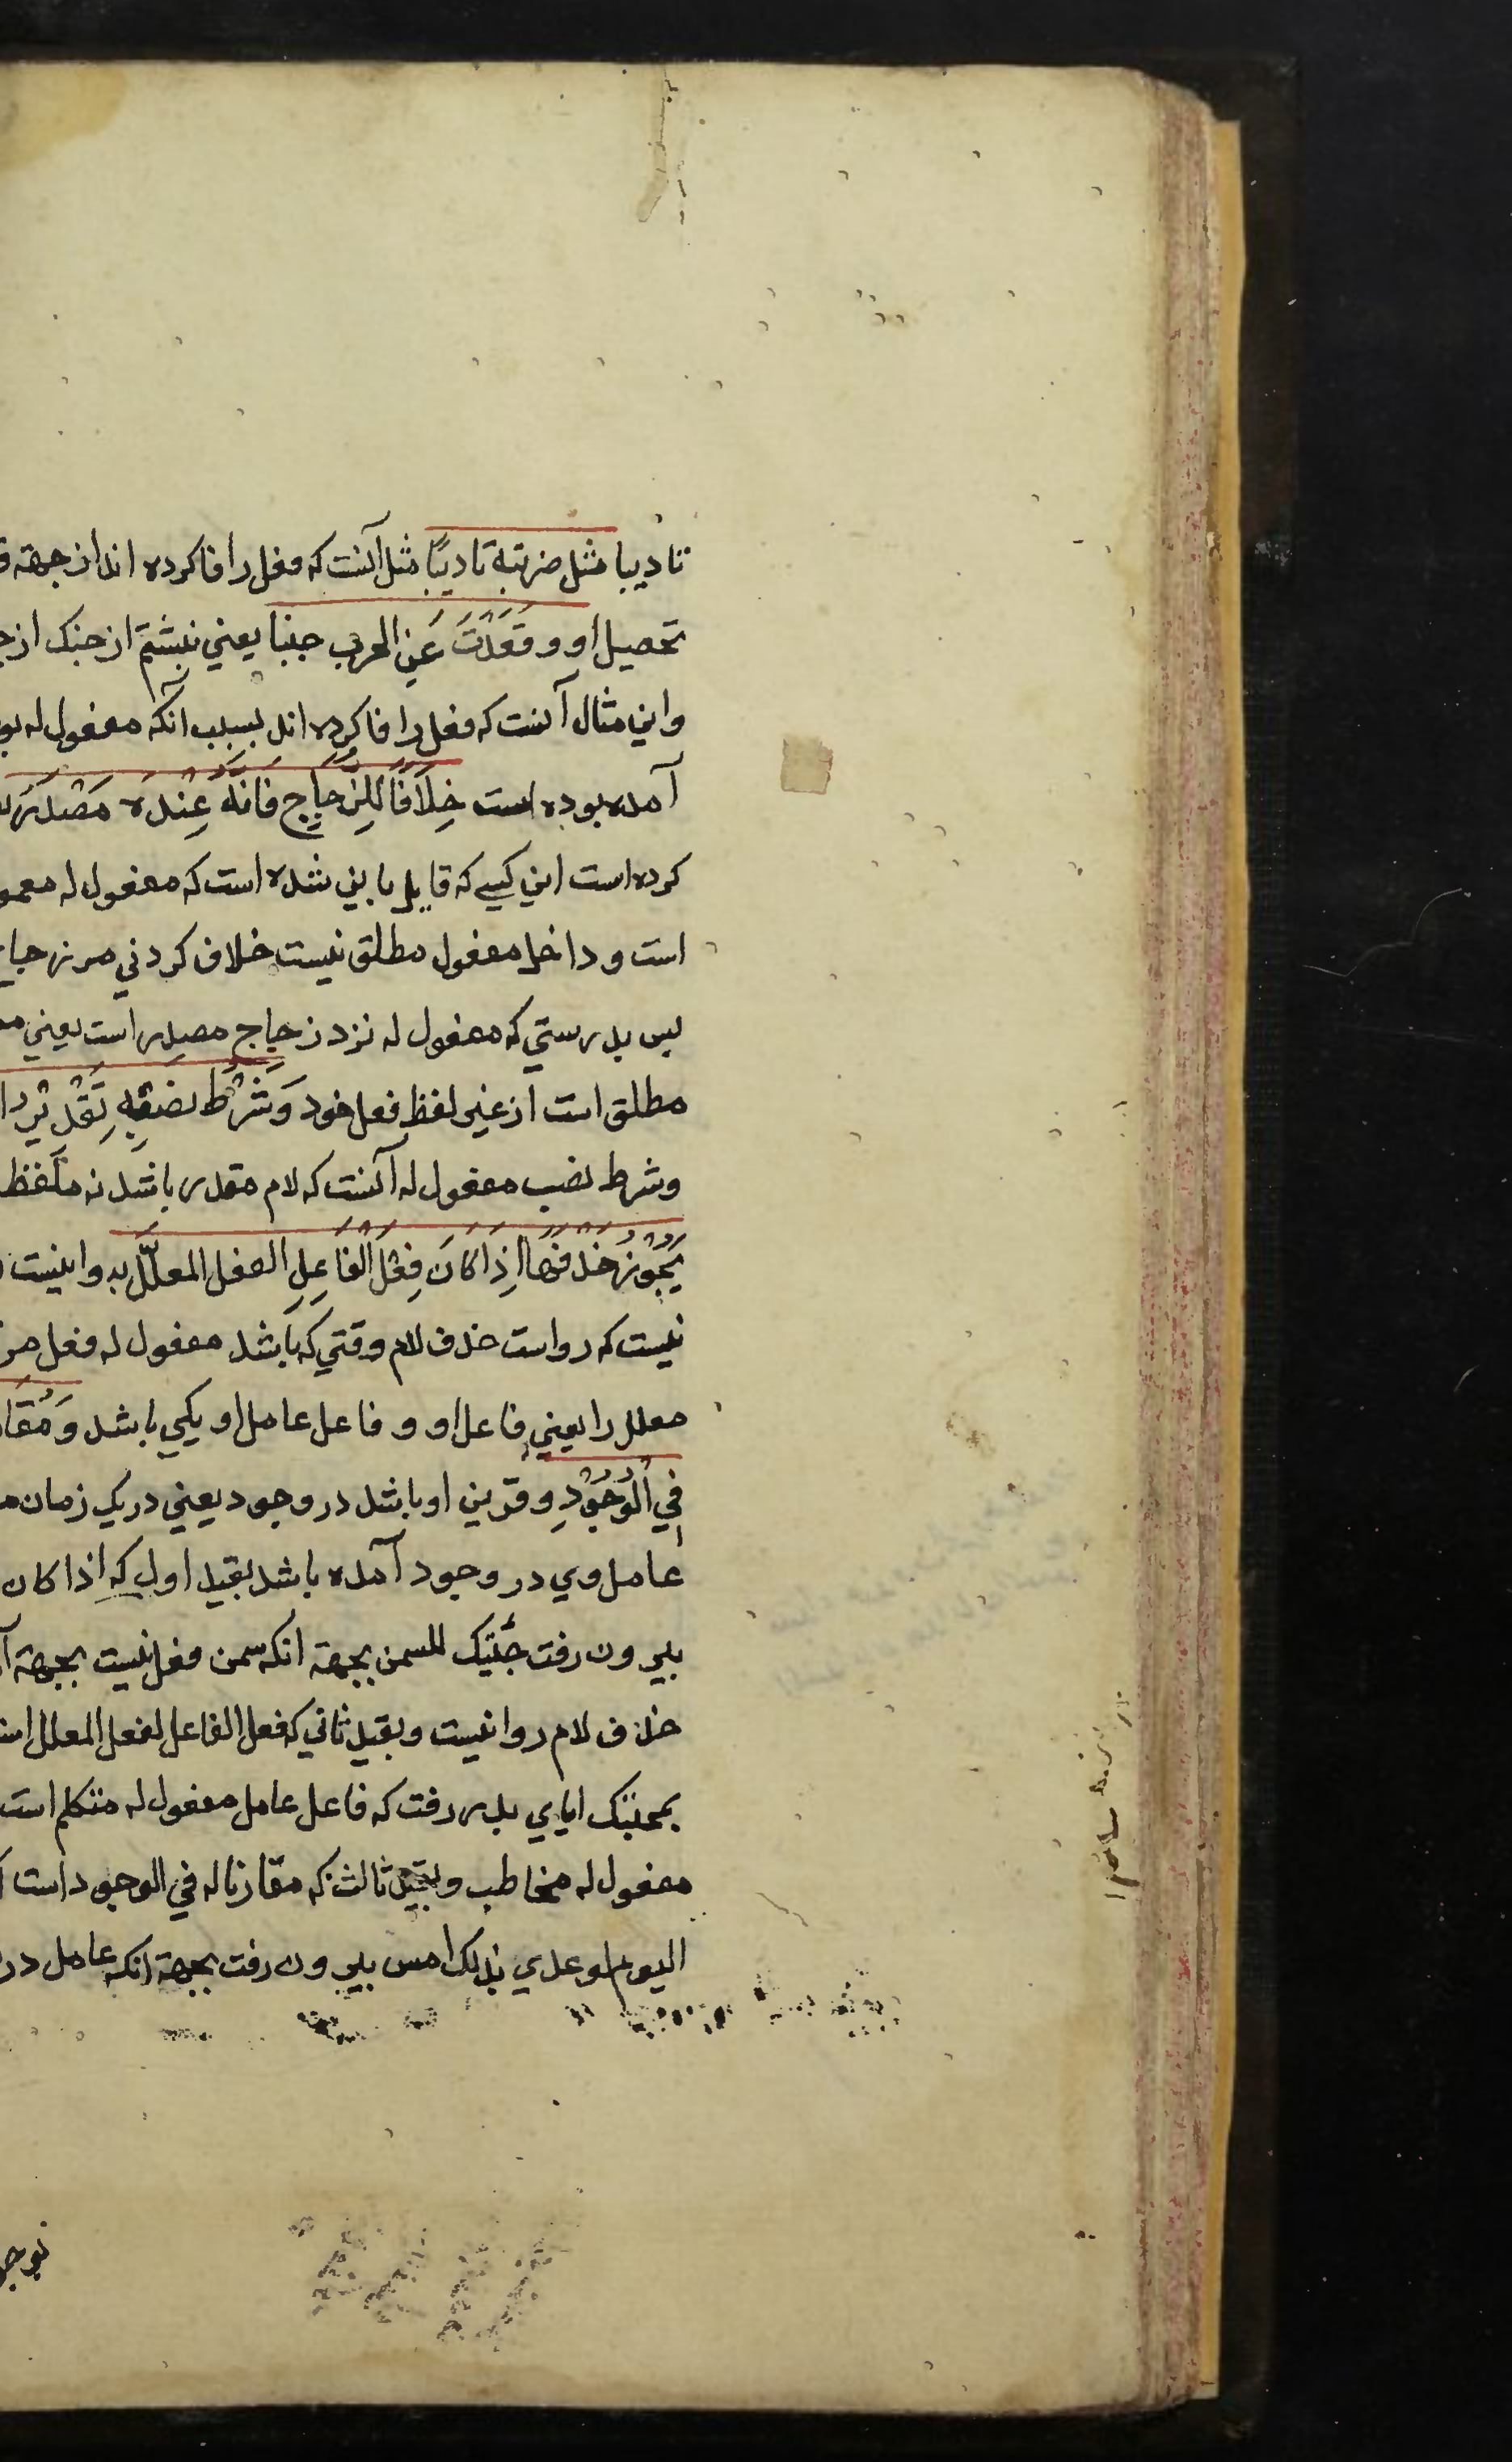 تادیبا مثل ضربته تادیبًا مثل آنست که فعل را فاکرده اند از جهة
تحصیل او و وقَعَدْتُ عَنِ الحرب جبنا یعنی ننشستم از جنک از
واین مثال آنست که فعل را فاکرده اند بسبب آنکه مفعول له
آمده بوده است خِلَافًا لِلزَّجَاجِ فَاِنَّهُ عِنْدَهُ مَصْدَرٌ
کرده است این کسی که قایل باین شده است که مفعول له
است و داخل مفعول مطلق نیست خلاف کردنی مر زجاج
پس بدرستی که مفعول له نزد زجاج مصدر است یعنی
مطلق است از غیر لفظ فعل خود وَشَرْطُ نصبِهِ تَقْدِیْرُ
وشرط نصب مفعول له آنست که لام مقدر باشد نه ملفظ
یَجُوْزُ حَذْفُهَا اِذَا كَانَ فِعْلَ الفَاعِلِ الفعل المعلَّل به و اینست
نیست که رواست حذف لام وقتی که باشد مفعول له فعل مر
معلل را یعنی فاعل او و فاعل عامل او یکی باشد وَمُقَا
فِی الْوُجُوْدِ و قرین او باشد در وجود یعنی در یک زمان
عامل وی در وجود آمده باشد بقید اول که اذا کان
بیرون رفت جئتک للسمن بجهة انکه سمن فعل نیست بجهة
حذف لام روا نیست و بقید ثانی که فعل الفاعل لفعل المعلل
بمحبتک ایای بدر رفت که فاعل عامل مفعول له متکلم است
مفعول له مخاطب و بقید ثالث که مقارنا له فی الوجود است
الیوم لوعدی بذلک امس بیرون رفت بجهة انکه عامل در